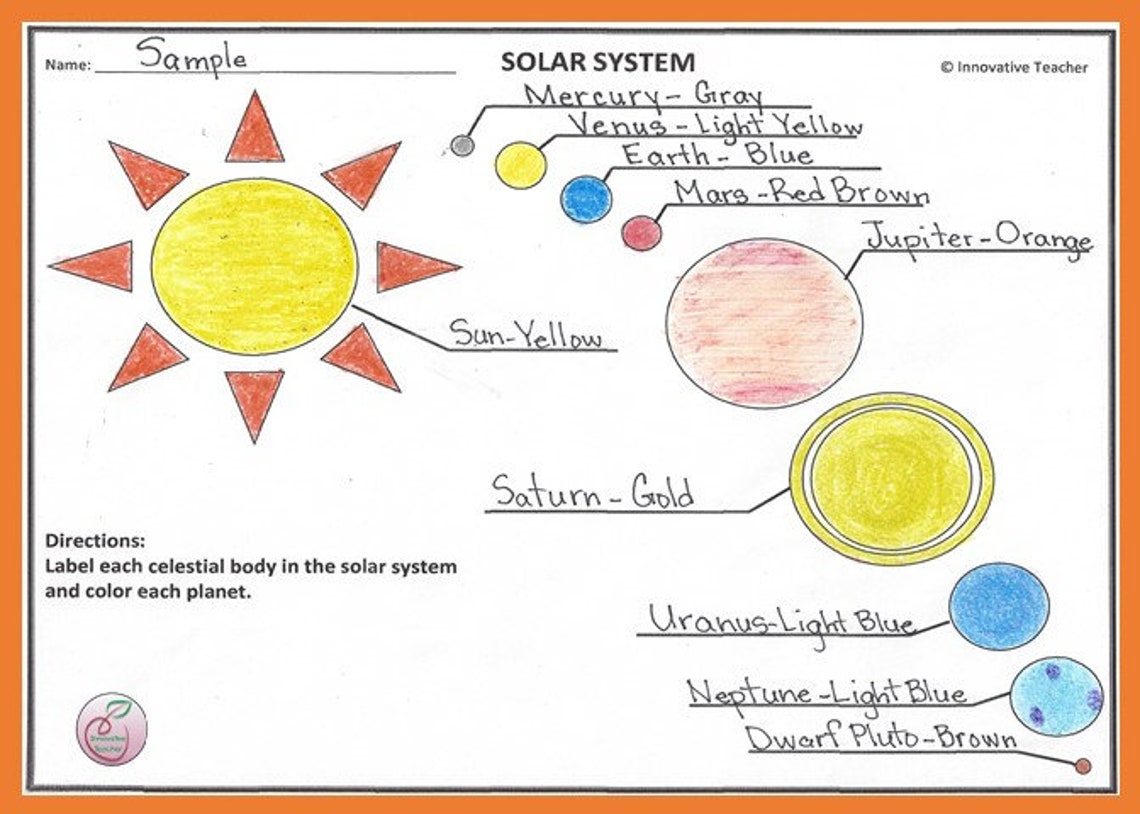 Name: Sample
SOLAR SYSTEM
© Innovative Teacher
Mercury - Gray
Venus - Light Yellow
Earth - Blue
Mars - Red Brown
Jupiter - Orange
Sun - Yellow
Saturn - Gold
Directions:
Label each celestial body in the solar system
and color each planet.
Uranus - Light Blue
Neptune - Light Blue
Dwarf Pluto - Brown
Innovative
Teacher